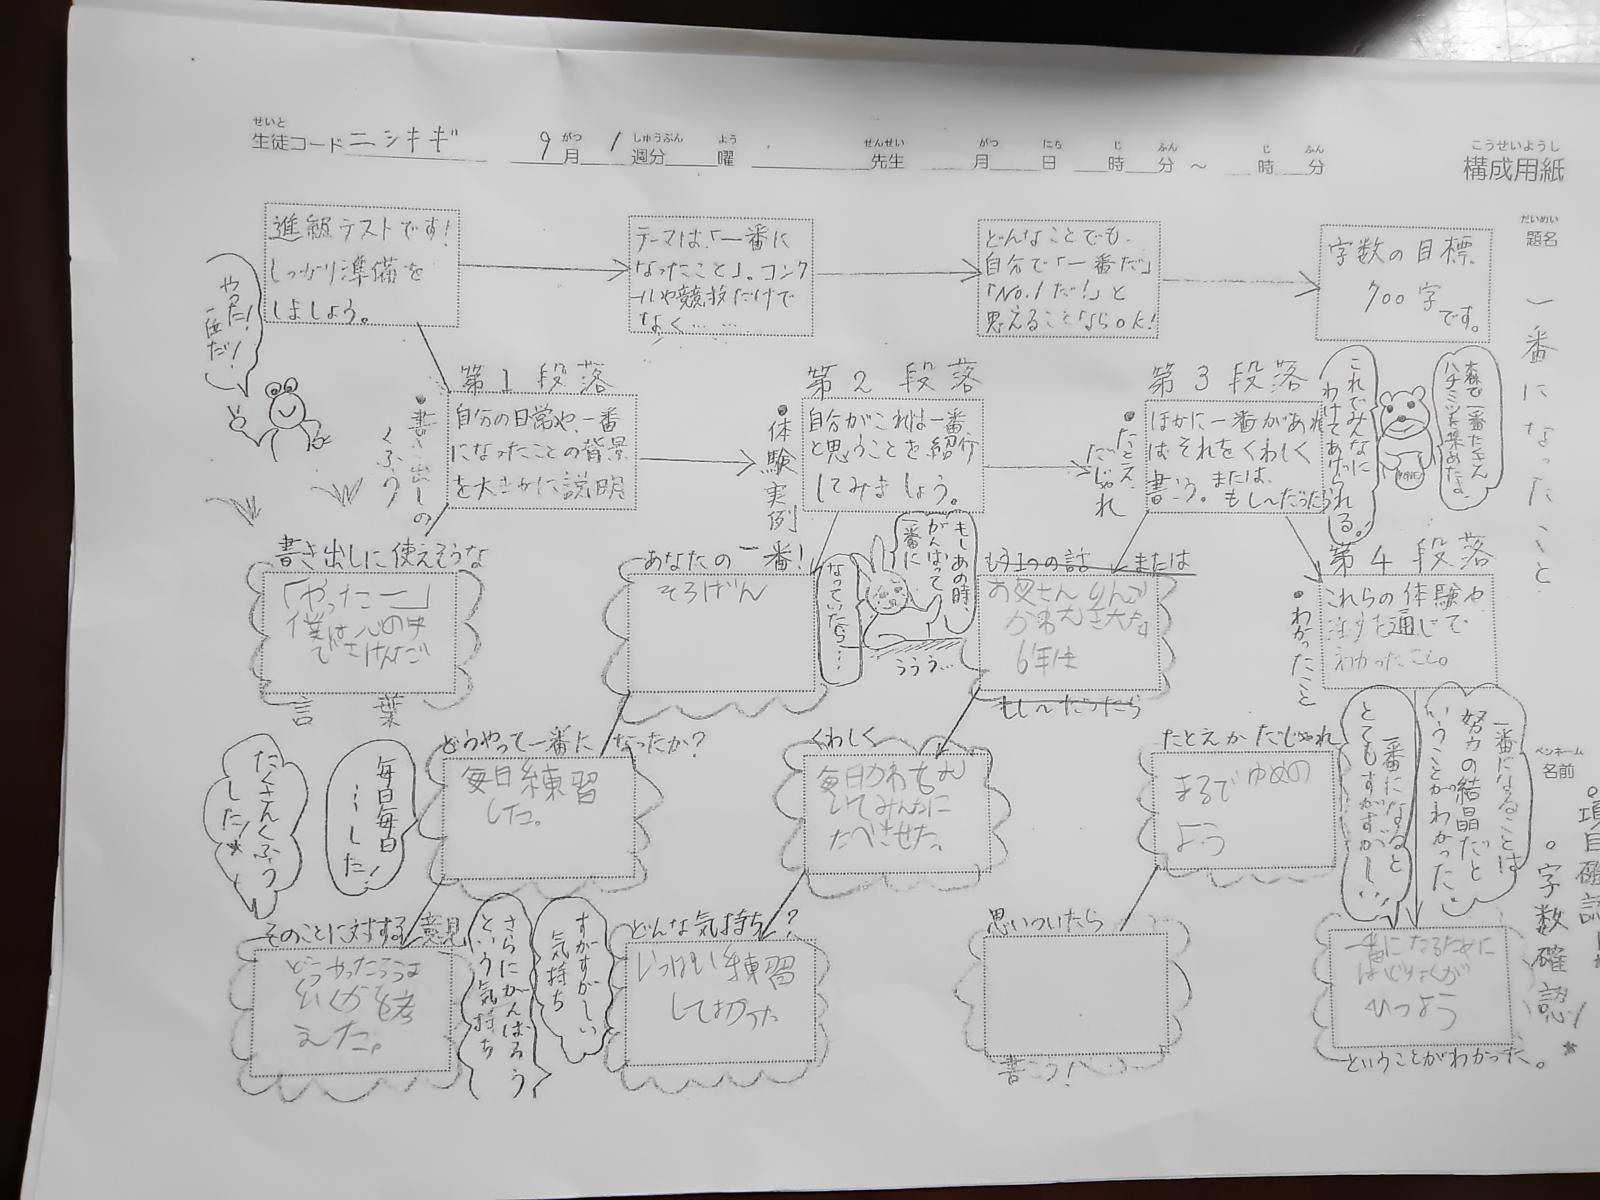 せいと
生徒コード ニシキギ
9 がつ 月 1 しゅうぶん 週分 よう 曜
せんせい 先生 がつ 月 にち 日 じ 時 ふん 分 ~ じ 時 ふん 分
こうせいようし
構成用紙
だいめい
題名
一番になったこと
ペンネーム
名前
。項目確認
。字数確認!
進級テストです!
しっかり準備を
しましょう。
テーマは、「一番に
なったこと」。コンク
ールや競技だけで
なく……
どんなことでも、
自分で「一番だ」
「No.1だ!」と
思えることならOK!
字数の目標
700字
です。
やった!
一位だ!
第1段落
自分の日常や、一番
になったことの背景
を大まかに説明
•書き出しの
くふう
第2段落
自分がこれは一番
と思うことを紹介
してみましょう。
•体験実例
第3段落
ほかに一番があれ
ばそれをくわしく
書こう。または、
もし〜だったら
•たとえ、
だじゃれ
これでみんなに
わけてあげられる。
森で一番たくさん
ハチミツを集めたよ
書き出しに使えそうな
「やったー」
僕は心の中
でさけんだ
言葉
あなたの一番!
そろばん
もしあの時、
がんばって
一番に
なっていたら…
ううう…
もう1つの話 または
お母さん りんご
かわむき大会
6年生
もし〜だったら
第4段落
これらの体験や
話を通じて
わかったこと。
•わかったこと
たくさんくふう
した!
毎日毎日
…した!
どうやって一番になったか?
毎日練習
した。
くわしく
毎日かわをむ
いてみんなに
たべさせた。
たとえかだじゃれ
まるでゆめの
よう
一番になると
とてもすがすがしい
一番になることは
努力の結晶だと
いうことがわかった。
そのことに対する意見
どうやったら
いいかを考
えた。
さらにがんばろう
という気持ち
すがすがしい
気持ち
どんな気持ち?
いっぱい練習
してよかった
思いついたら
書こう!
一番になるために
はどりょくが
ひつよう
ということがわかった。